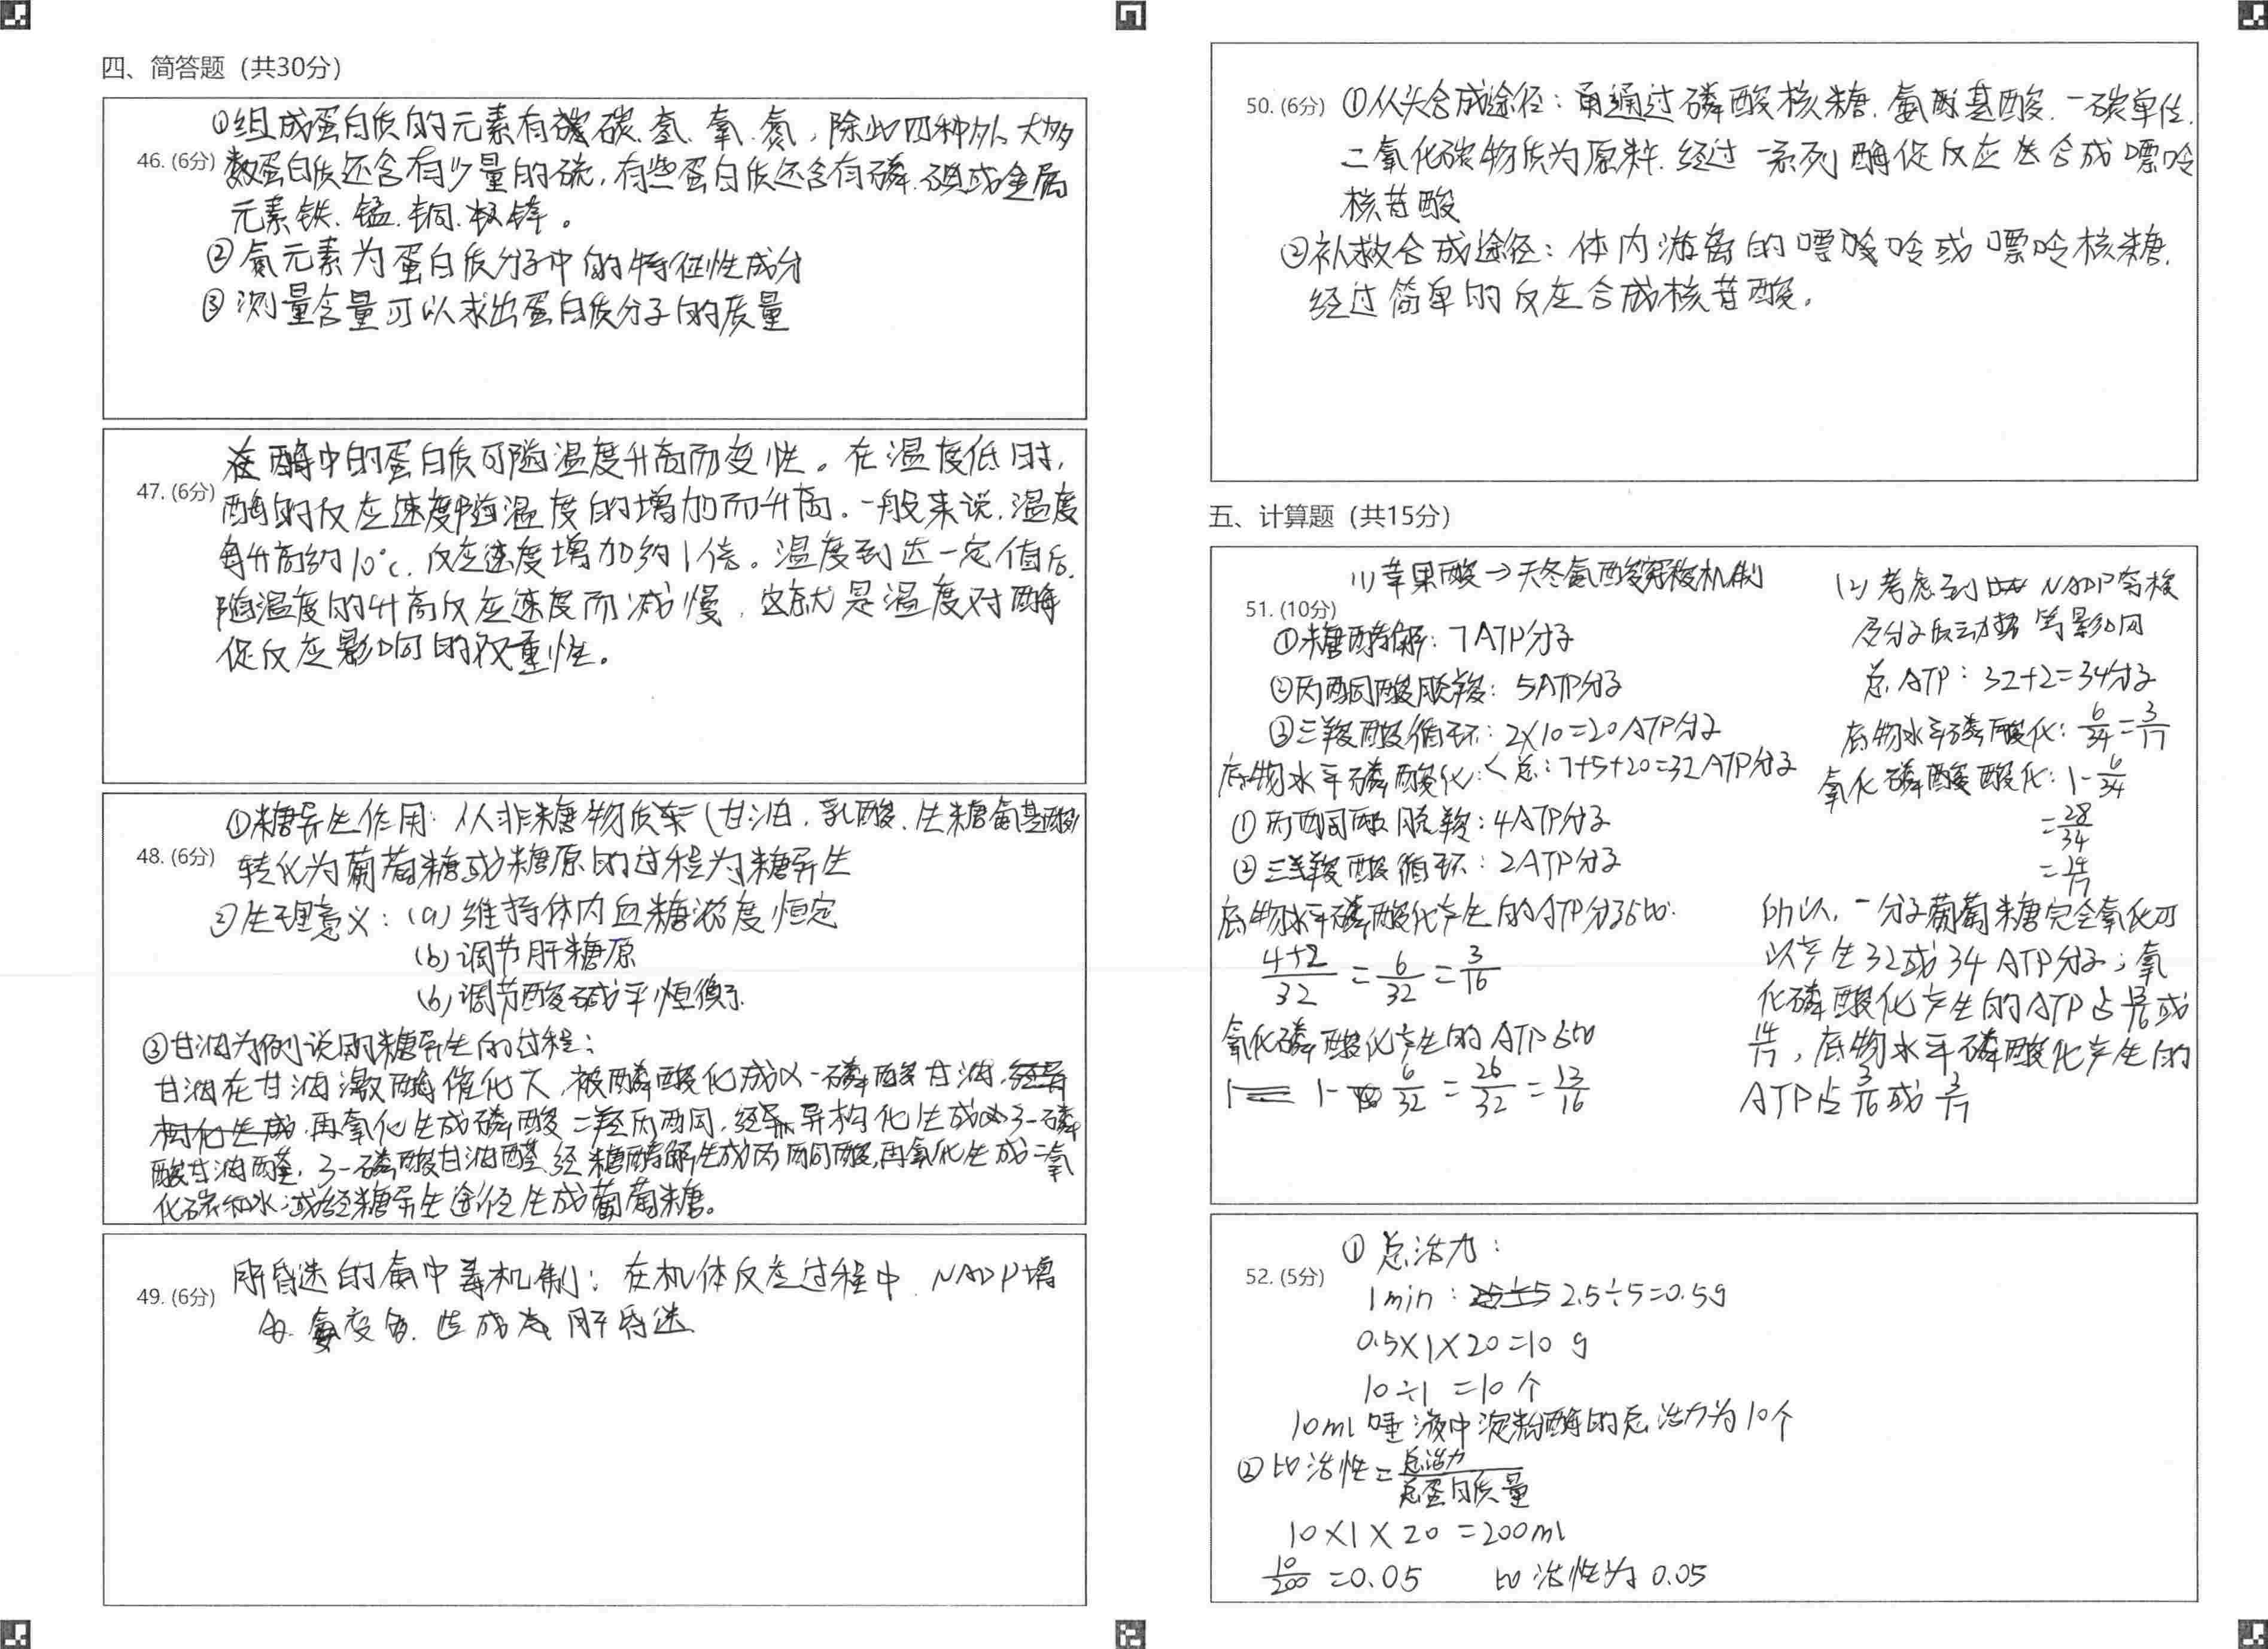 四、简答题（共30分）
①组成蛋白质的元素有碳、氢、氧、氮，除此四种外、大多
46. (6分)
数蛋白质还含有少量的硫，有些蛋白质还含有磷、碘或金属
元素铁、锰、铜、锌。
②氮元素为蛋白质分子中的特征性成分
③测量含量可以求出蛋白质分子的质量
酶中的蛋白质可随温度升高而变性。在温度低时，
47. (6分)
酶的反应速度随温度的增加而升高。一般来说，温度
每升高约10℃，反应速度增加约1倍。温度到达一定值后，
随温度的升高反应速度而减慢，这就是温度对酶
促反应影响的双重性。
①糖异生作用：从非糖物质（甘油、乳酸、生糖氨基酸）
48. (6分)
转化为葡萄糖或糖原的过程为糖异生
②生理意义：(a)维持体内血糖浓度恒定
(b)调节肝糖原
(b)调节酸碱平恒衡
③甘油为例说明糖异生的过程：
甘油在甘油激酶催化下，被磷酸化成α-磷酸甘油，经异
构化生成，再氧化生成磷酸二羟丙酮，经异构化生成3-磷
酸甘油醛，3-磷酸甘油醛经糖酵解生成丙酮酸，再氧化生成二氧
化碳和水；或经糖异生途径生成葡萄糖。
肝昏迷的氨中毒机制：在机体反应过程中，NADP增
49. (6分)
氨变多，造成肝昏迷
50. (6分)
①从头合成途径：通过磷酸核糖、氨基酸、一碳单位、
二氧化碳物质为原料，经过一系列酶促反应合成嘌呤
核苷酸
②补救合成途径：体内游离的嘌呤或嘌呤核糖，
经过简单的反应合成核苷酸。
五、计算题（共15分）
(1)苹果酸→天冬氨酸穿梭机制
51. (10分)
①糖酵解：7ATP分子
②丙酮酸脱羧：5ATP分子
③三羧酸循环：2×10=20ATP分子
总：7+5+20=32ATP分子
底物水平磷酸化：
①丙酮酸脱羧：4ATP分子
②三羧酸循环：2ATP分子
底物水平磷酸化产生的ATP分子占比：
4+2/32 = 6/32 = 3/16
氧化磷酸化产生的ATP占比
1- 6/32 = 26/32 = 13/16
(2)考虑到 NADP穿梭
及分子 等影响
总ATP：32+2=34分子
底物水平磷酸化：6/34=3/17
氧化磷酸酸化：1-6/34
=28/34
=14/17
所以，一分子葡萄糖完全氧化可
以产生32或34ATP分子；氧
化磷酸化产生的ATP占13/16或
14/17，底物水平磷酸化产生的
ATP占3/16或3/17
①总活力：
52. (5分)
1min：25÷5 2.5÷5=0.5g
0.5×1×20=10 g
10÷1 =10个
10ml唾液中淀粉酶的总活力为10个
②比活性=总活力/总蛋白质量
10×1×20 =200ml
10/200 =0.05 比活性为0.05